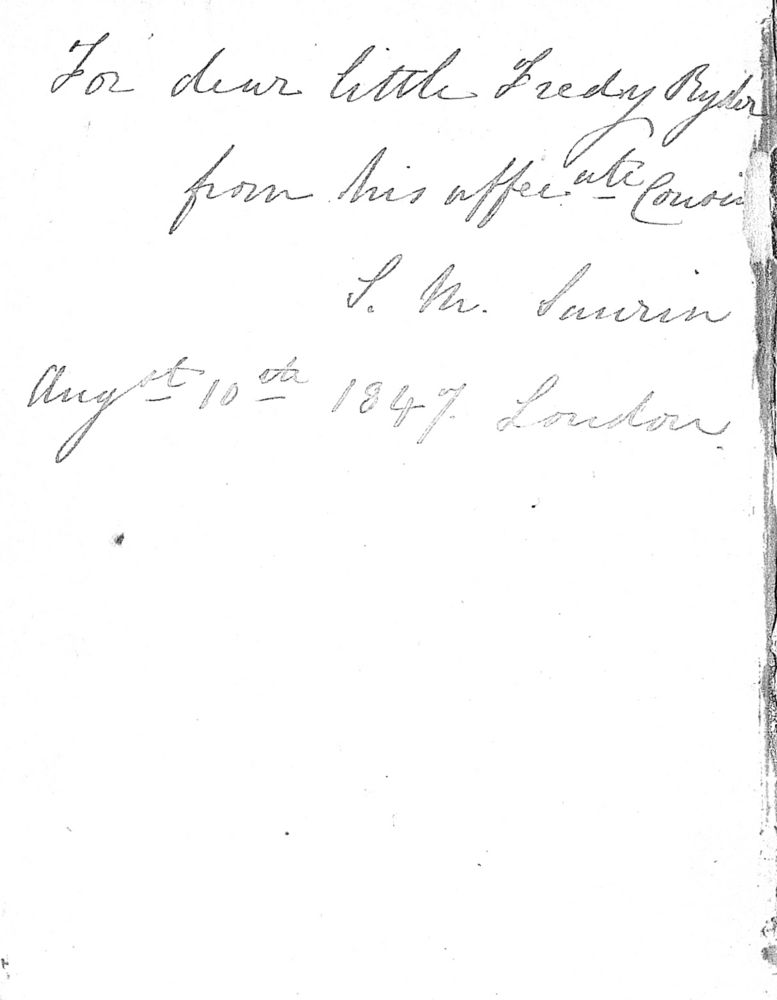 For dear little Fredy Ryder
from his affecate Cousin
S. M. Saurin
Augst 10th 1847. London.